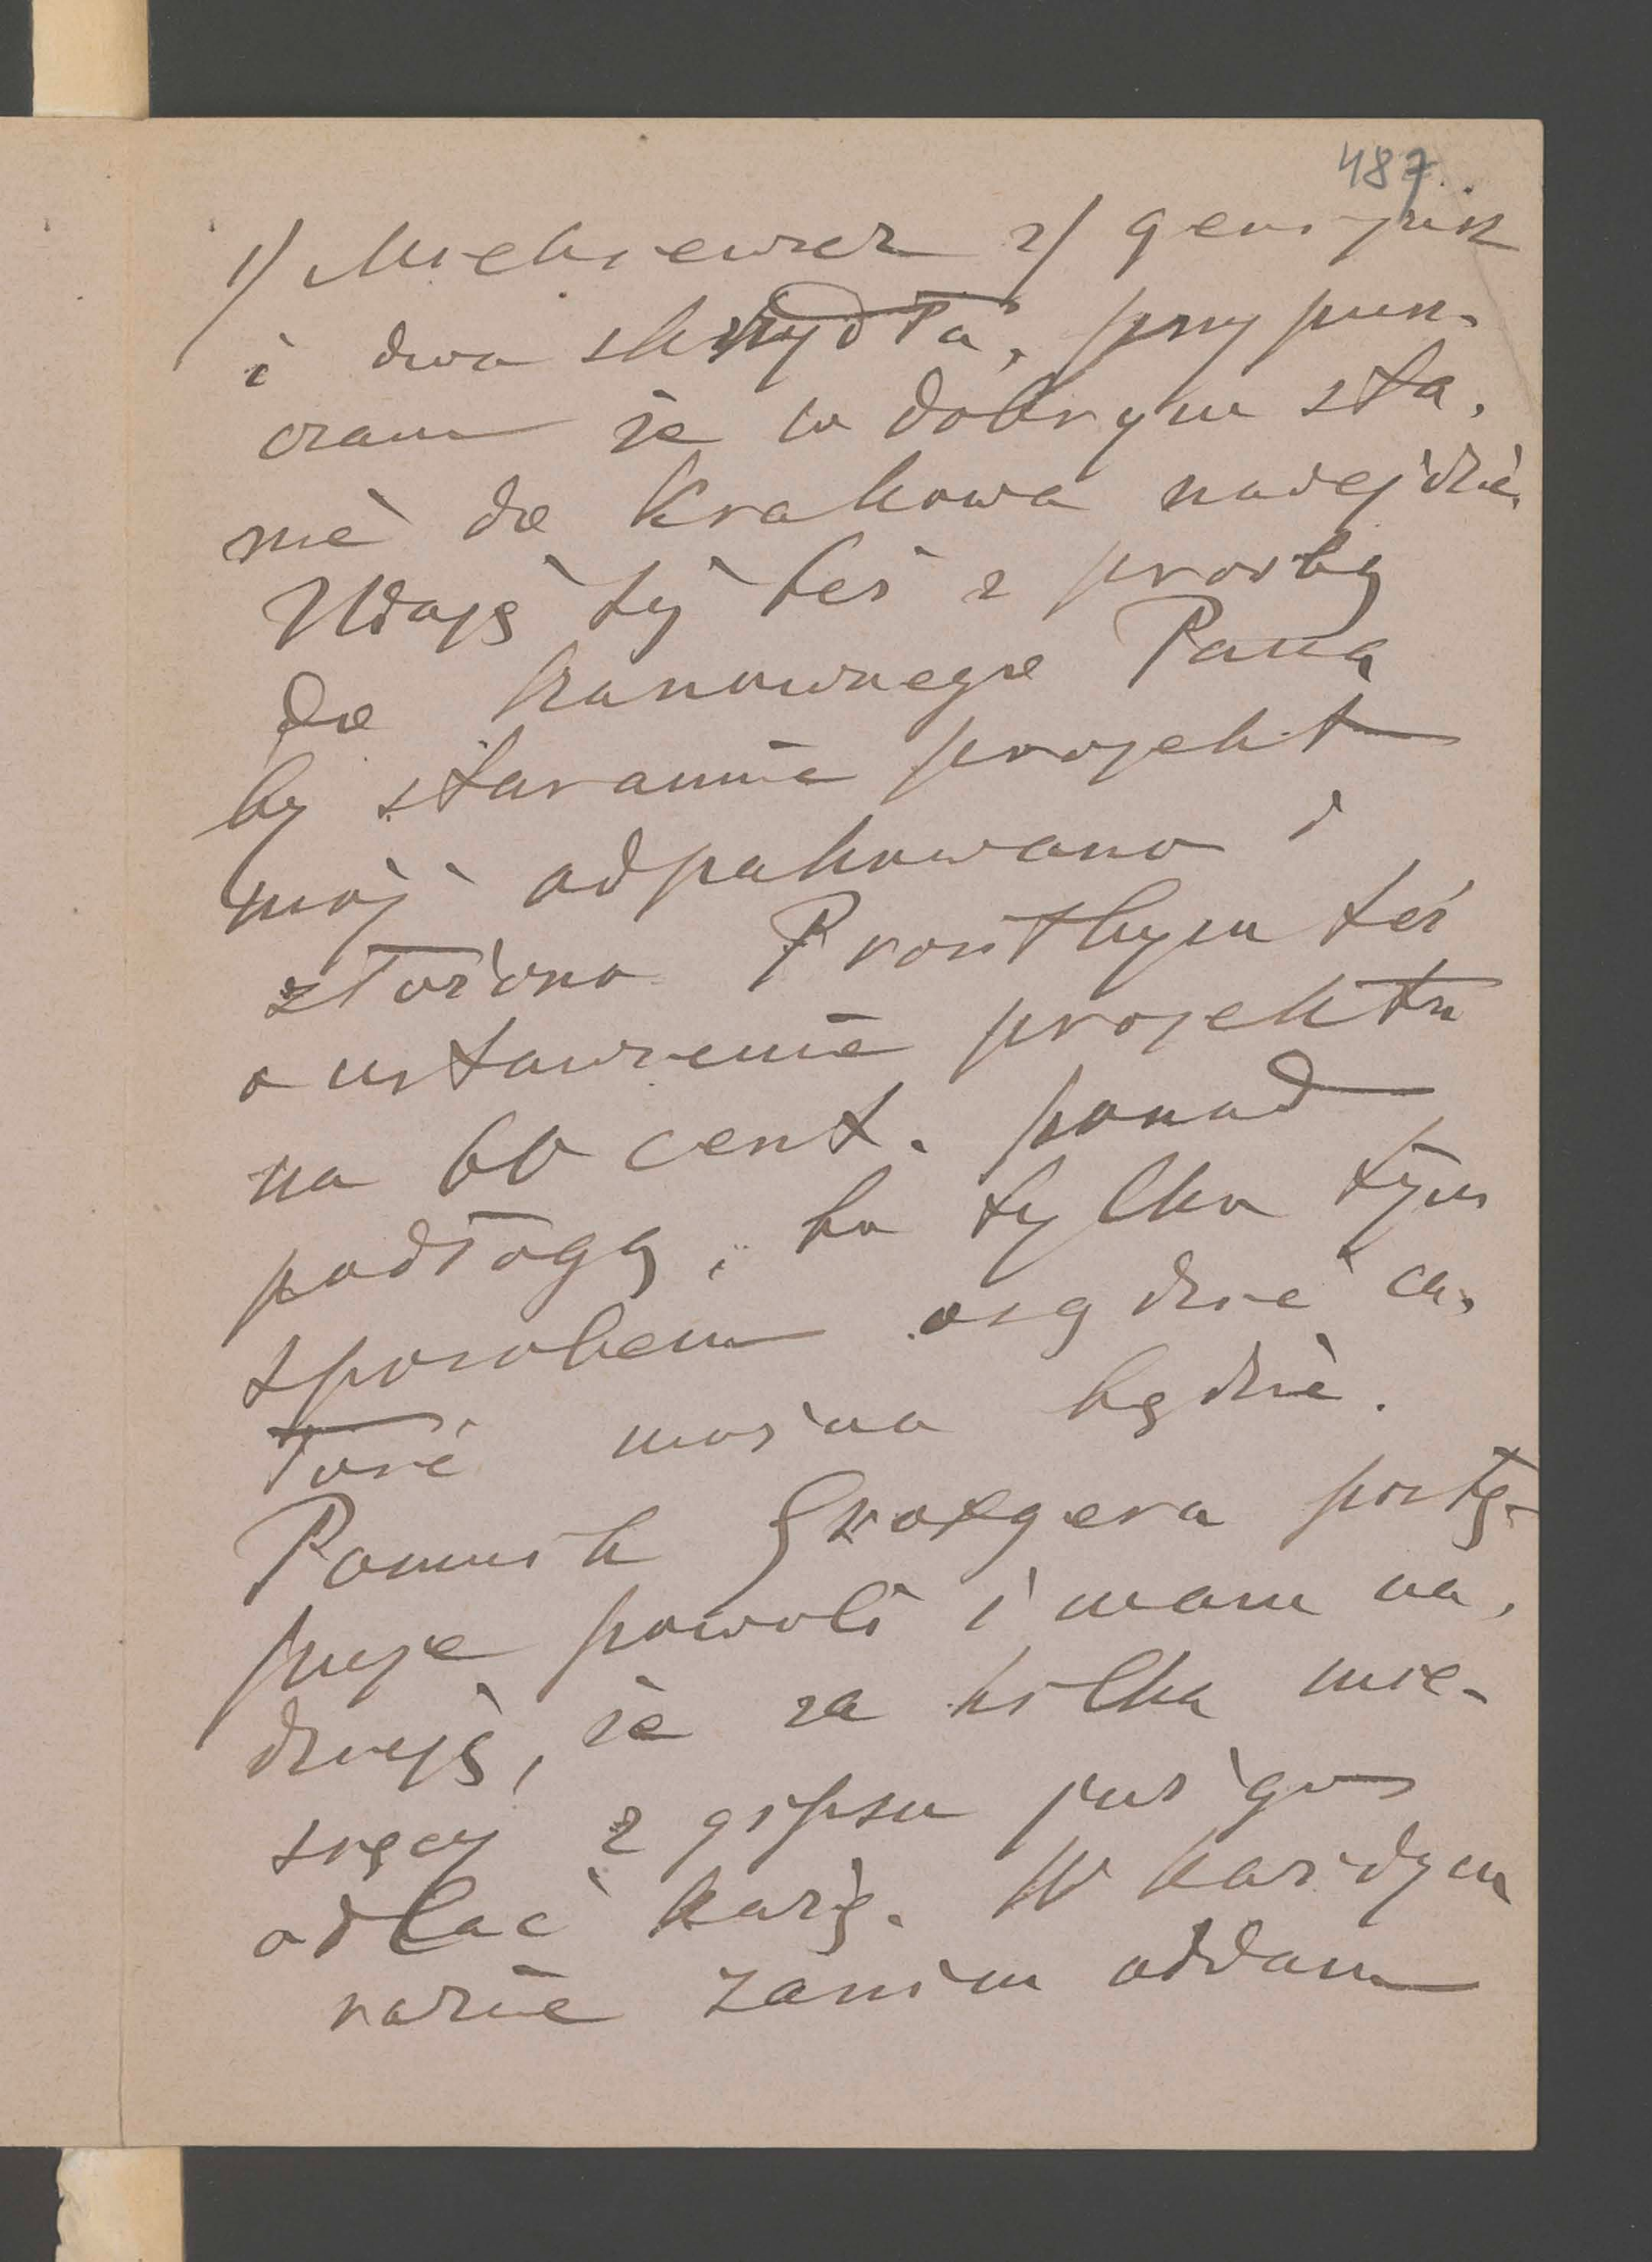 487.
1) Mickiewicz 2) geniusz
i dwa skrzydła, przypusz-
czam że w dobrym sta-
nie do Krakowa nadejdzie.
Udaję się też z prośbą
do Szanownego Pana
by starannie projekt
mój odpakowano i
złożono Prosiłbym też
o ustawienie projektu
na 60 cent. ponad
podłogę, bo tylko tym
sposobem osądzić ca-
łość można będzie.
Pomnik Grottgera postę-
puje powoli i mam na-
dzieję, że za kilka mie-
sięcy z gipsu już go
odlać każę. W każdym
razie zanim oddam